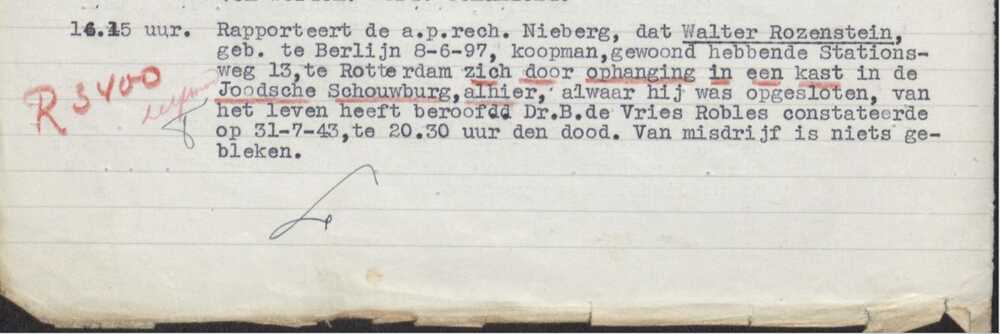 16.15 uur. Rapporteert de a.p.rech. Nieberg, dat Walter Rozenstein,
geb. te Berlijn 8-6-97, koopman,gewoond hebbende Stations-
weg 13,te Rotterdam zich door ophanging in een kast in de
Joodsche Schouwburg,alhier, alwaar hij was opgesloten, van
het leven heeft beroofdd Dr.B.de Vries Robles constateerde
op 31-7-43,te 20.30 uur den dood. Van misdrijf is niets ge-
bleken.
R 3400